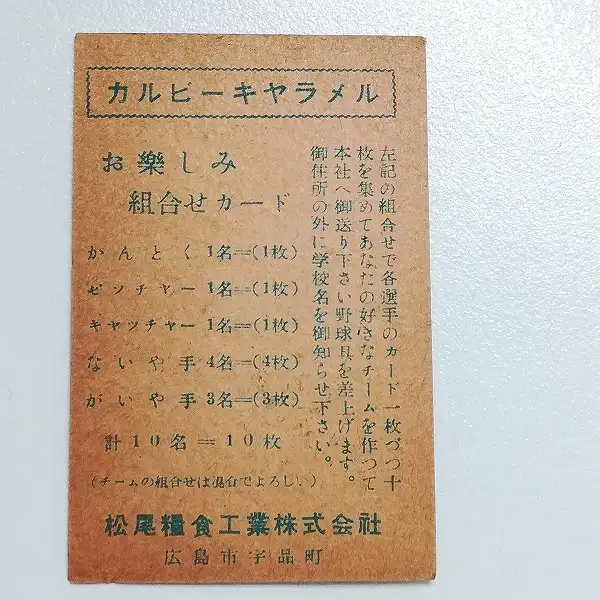 カルビーキヤラメル
お楽しみ
組合せカード
かんとく 1名=(1枚)
ピツチャー 1名=(1枚)
キャツチャー 1名=(1枚)
ないや手 4名=(4枚)
がいや手 3名=(3枚)
計10名=10枚
(チームの組合せは混合でよろしい)
左記の組合せで各選手のカード一枚づつ十
枚を集めてあなたの好きなチームを作つて
本社へ御送り下さい野球具を差上げます。
御住所の外に学校名を御知らせ下さい。
松尾糧食工業株式会社
広島市宇品町